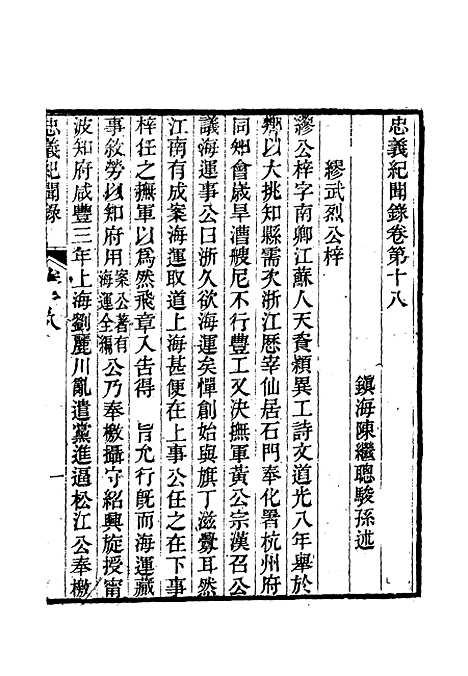 忠義紀聞錄卷第十八
鎮海陳繼聰駿孫述
繆武烈公梓
繆公梓字南卿江蘇人天資穎異工詩文道光八年舉於
鄉以大挑知縣需次浙江歷宰仙居石門奉化署杭州府
同知會歲旱漕艘尼不行豐工又決撫軍黃公宗漢召公
議海運事公曰浙久欲海運矣憚創始與旗丁滋釁耳然
江南有成案海運取道上海甚便在上事公任之在下事
梓任之撫軍以爲然飛章入告得 旨允行旣而海運藏
事敘勞以知府用案公著有海運全編公乃奉檄攝守紹興旋授甯
波知府咸豐三年上海劉麗川亂遣黨進逼松江公奉檄
忠義紀聞錄
卷十八
一